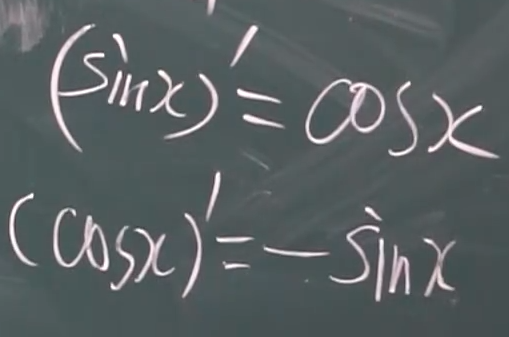 (sinx)'=cosx
(cosx)'=-sinx